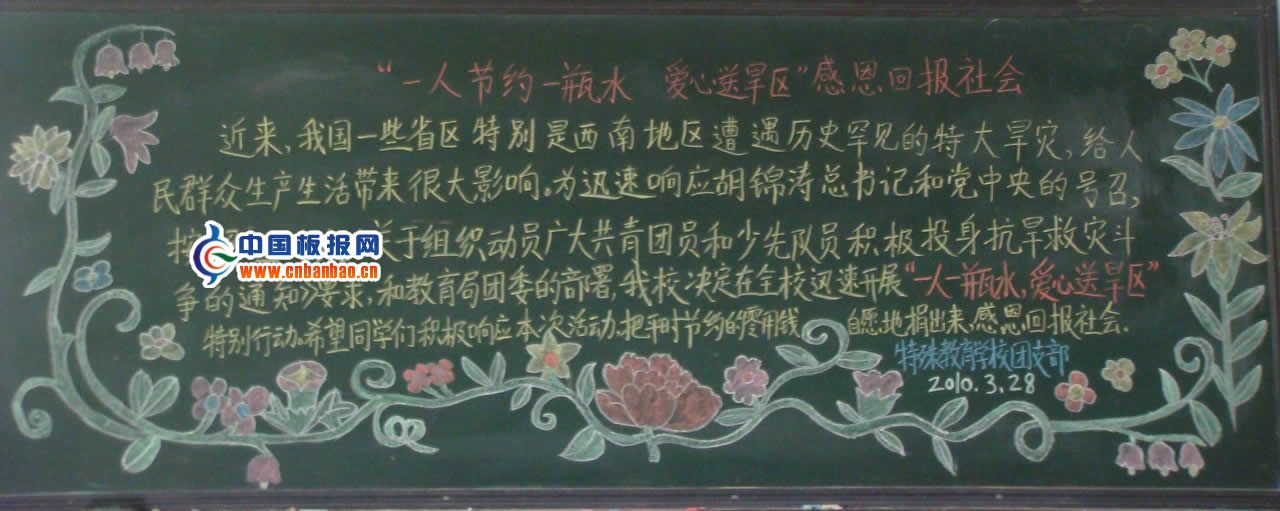 “一人节约一瓶水 爱心送旱区”感恩回报社会
近来,我国一些省区特别是西南地区遭遇历史罕见的特大旱灾,给人
民群众生产生活带来很大影响。为迅速响应胡锦涛总书记和党中央的号召,
关于组织动员广大共青团员和少先队员积极投身抗旱救灾斗
争的通知》要求,和教育局团委的部署,我校决定在全校迅速开展“一人一瓶水,爱心送旱区”
特别行动。希望同学们积极响应本次活动,把平时节约的零用钱 自愿地捐出来,感恩回报社会.
特殊教育学校团支部
2010.3.28
中国板报网
www.cnbanbao.cn